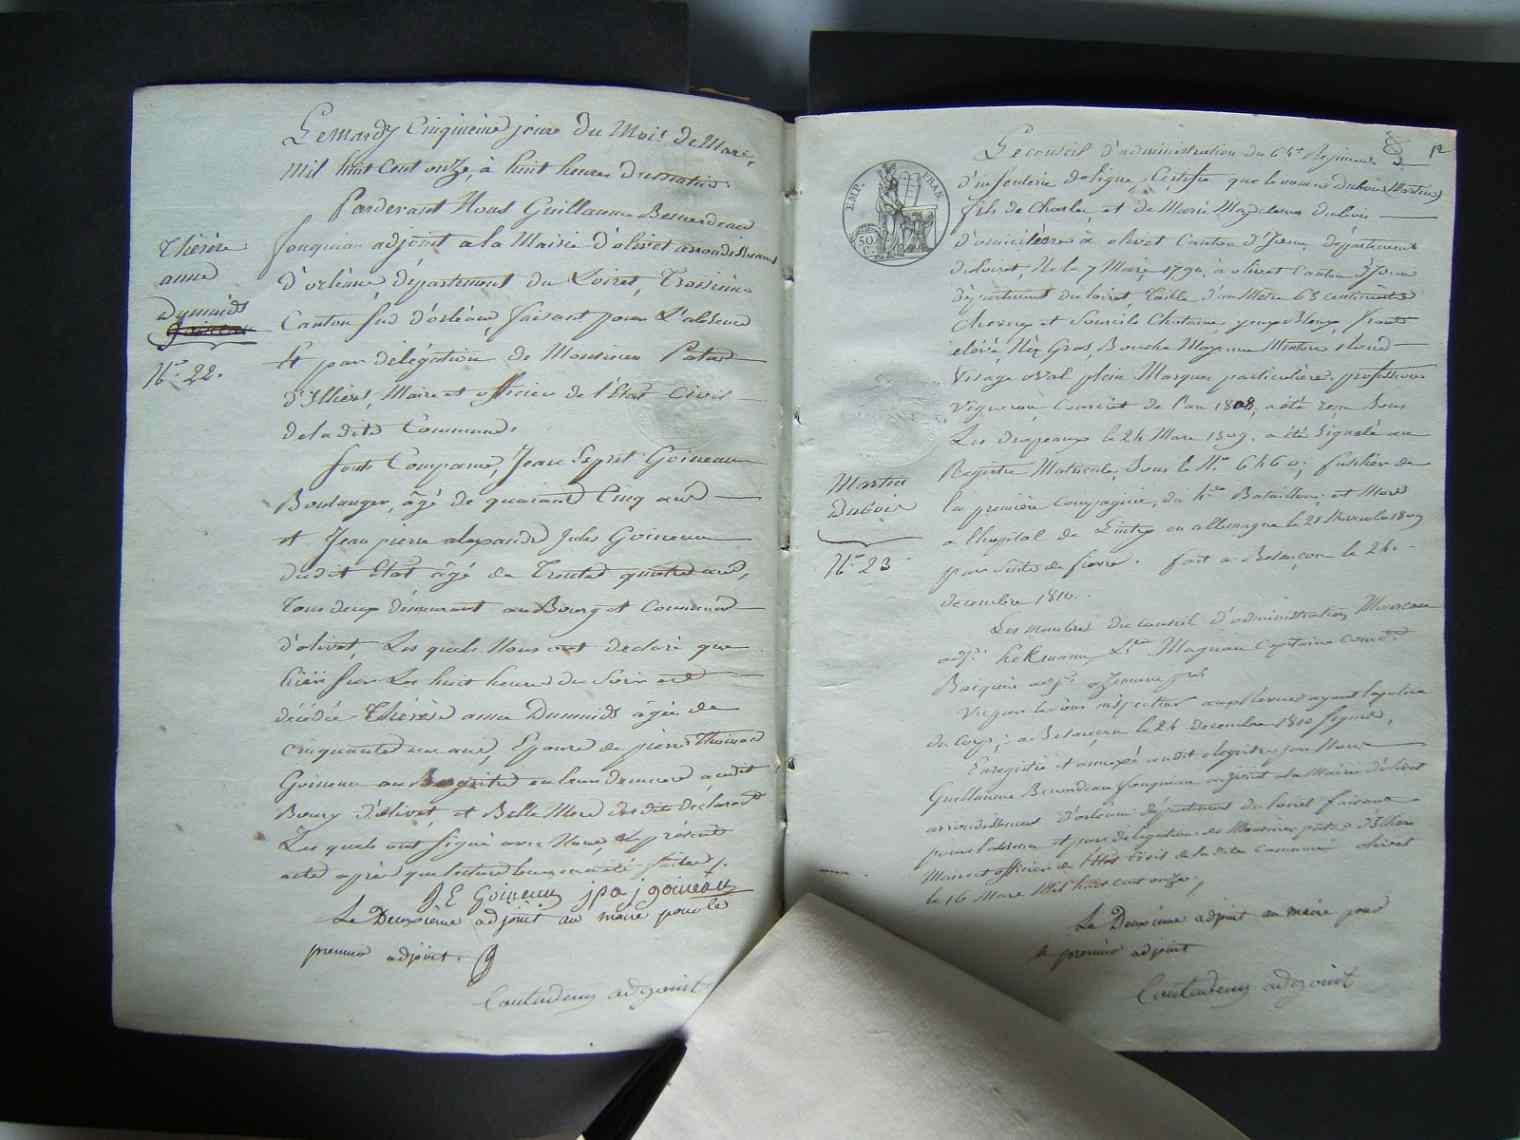 Le mardy Cinquieme jour du Mois de Mars,
Mil huit Cent onze, à huit heures du matin.
Pardevant Nous Guillaume Beaurdeau
fouqueau adjoint a la Mairie d'olivet arrondissement
d'orléans département du Loiret, Troisieme
Canton Sud d'orléans, faisant pour L'absence
et par délégation de Monsieur Patas
d'Illiers, Maire et officier de l'Etat Civil
de la dite Commune.
Thérèse
anne
Dumuids
N.° 22.
Sont Comparus, Jean Esprit Goineau
Boulanger, âgé de quarante Cinq ans
et Jean pierre alexandre Jules Goineau
dudit Etat âgé de Trente quatre ans,
tous deux demeurant au Bourg et Commune
d'olivet, Les quels Nous ont declaré que
hier sur Les huit heures du Soir est
décédée Thérèse anne Dumuids âgée de
cinquante un ans, Epouse de pierre
Goineau en leur demeure audit
Bourg d'olivet, et Belle Mere des dits declarants
Les quels ont signé avec Nous, Le présent
acte après que lecture leur en a été faite.
J E Goineau j p a j goineau
Le Deuxième adjoint au maire pour le
premier adjoint.
adjoint
12
Le conseil d'administration du 64.e Regiment
d'infanterie de ligne, Certifie que le nommé Dubois (Martin)
fils de Charles et de Marie Magdeleine
domiciliés à olivet Canton d'Idem, département
du Loiret, Né le 7 Mars 1790, à olivet Canton d'Idem
département du loiret, taille d'un Metre 65 centimetres
Cheveux et Sourcils Chatains yeux Bleux, front
elévé, Néz Gros, Bouche Moyenne Menton rond
Visage oval plein Marques particulières, profession
Vigneron, Conscrit de l'an 1808, a été reçu Sous
Les drapeaux le 24 Mars 1809. a été Signalé au
Registre Matricule, Sous le N.° 6460; fusilier de
la premiere compagnie, du 4.me Bataillon; et Mort
a l'hopital de Lintz en allemagne le 21 1809
par Suite de fievre. fait a Besançon le 24
decembre 1810.
EMP. FRAN.
50
C.
Martin
Dubois
N.° 23
Les membres du conseil d'administration,
Magnan Capitaine
Vu par le sous inspecteur aux Revues ayant la police
du Corps; a Besançon le 24 decembre 1810 signé,
Enregistré et annexé audit Registre par Nous
Guillaume Beaurdeau fouqueau adjoint a la Mairie d'olivet
arrondissement d'orléans département du loiret faisant
pour l'absence et par délégation de Monsieur patas d'Illiers
Maire et officier de l'Etat Civil de la dite Commune olivet
le 16 Mars Mil huit cent onze.
Le Deuxieme adjoint au maire pour
le premier adjoint
adjoint